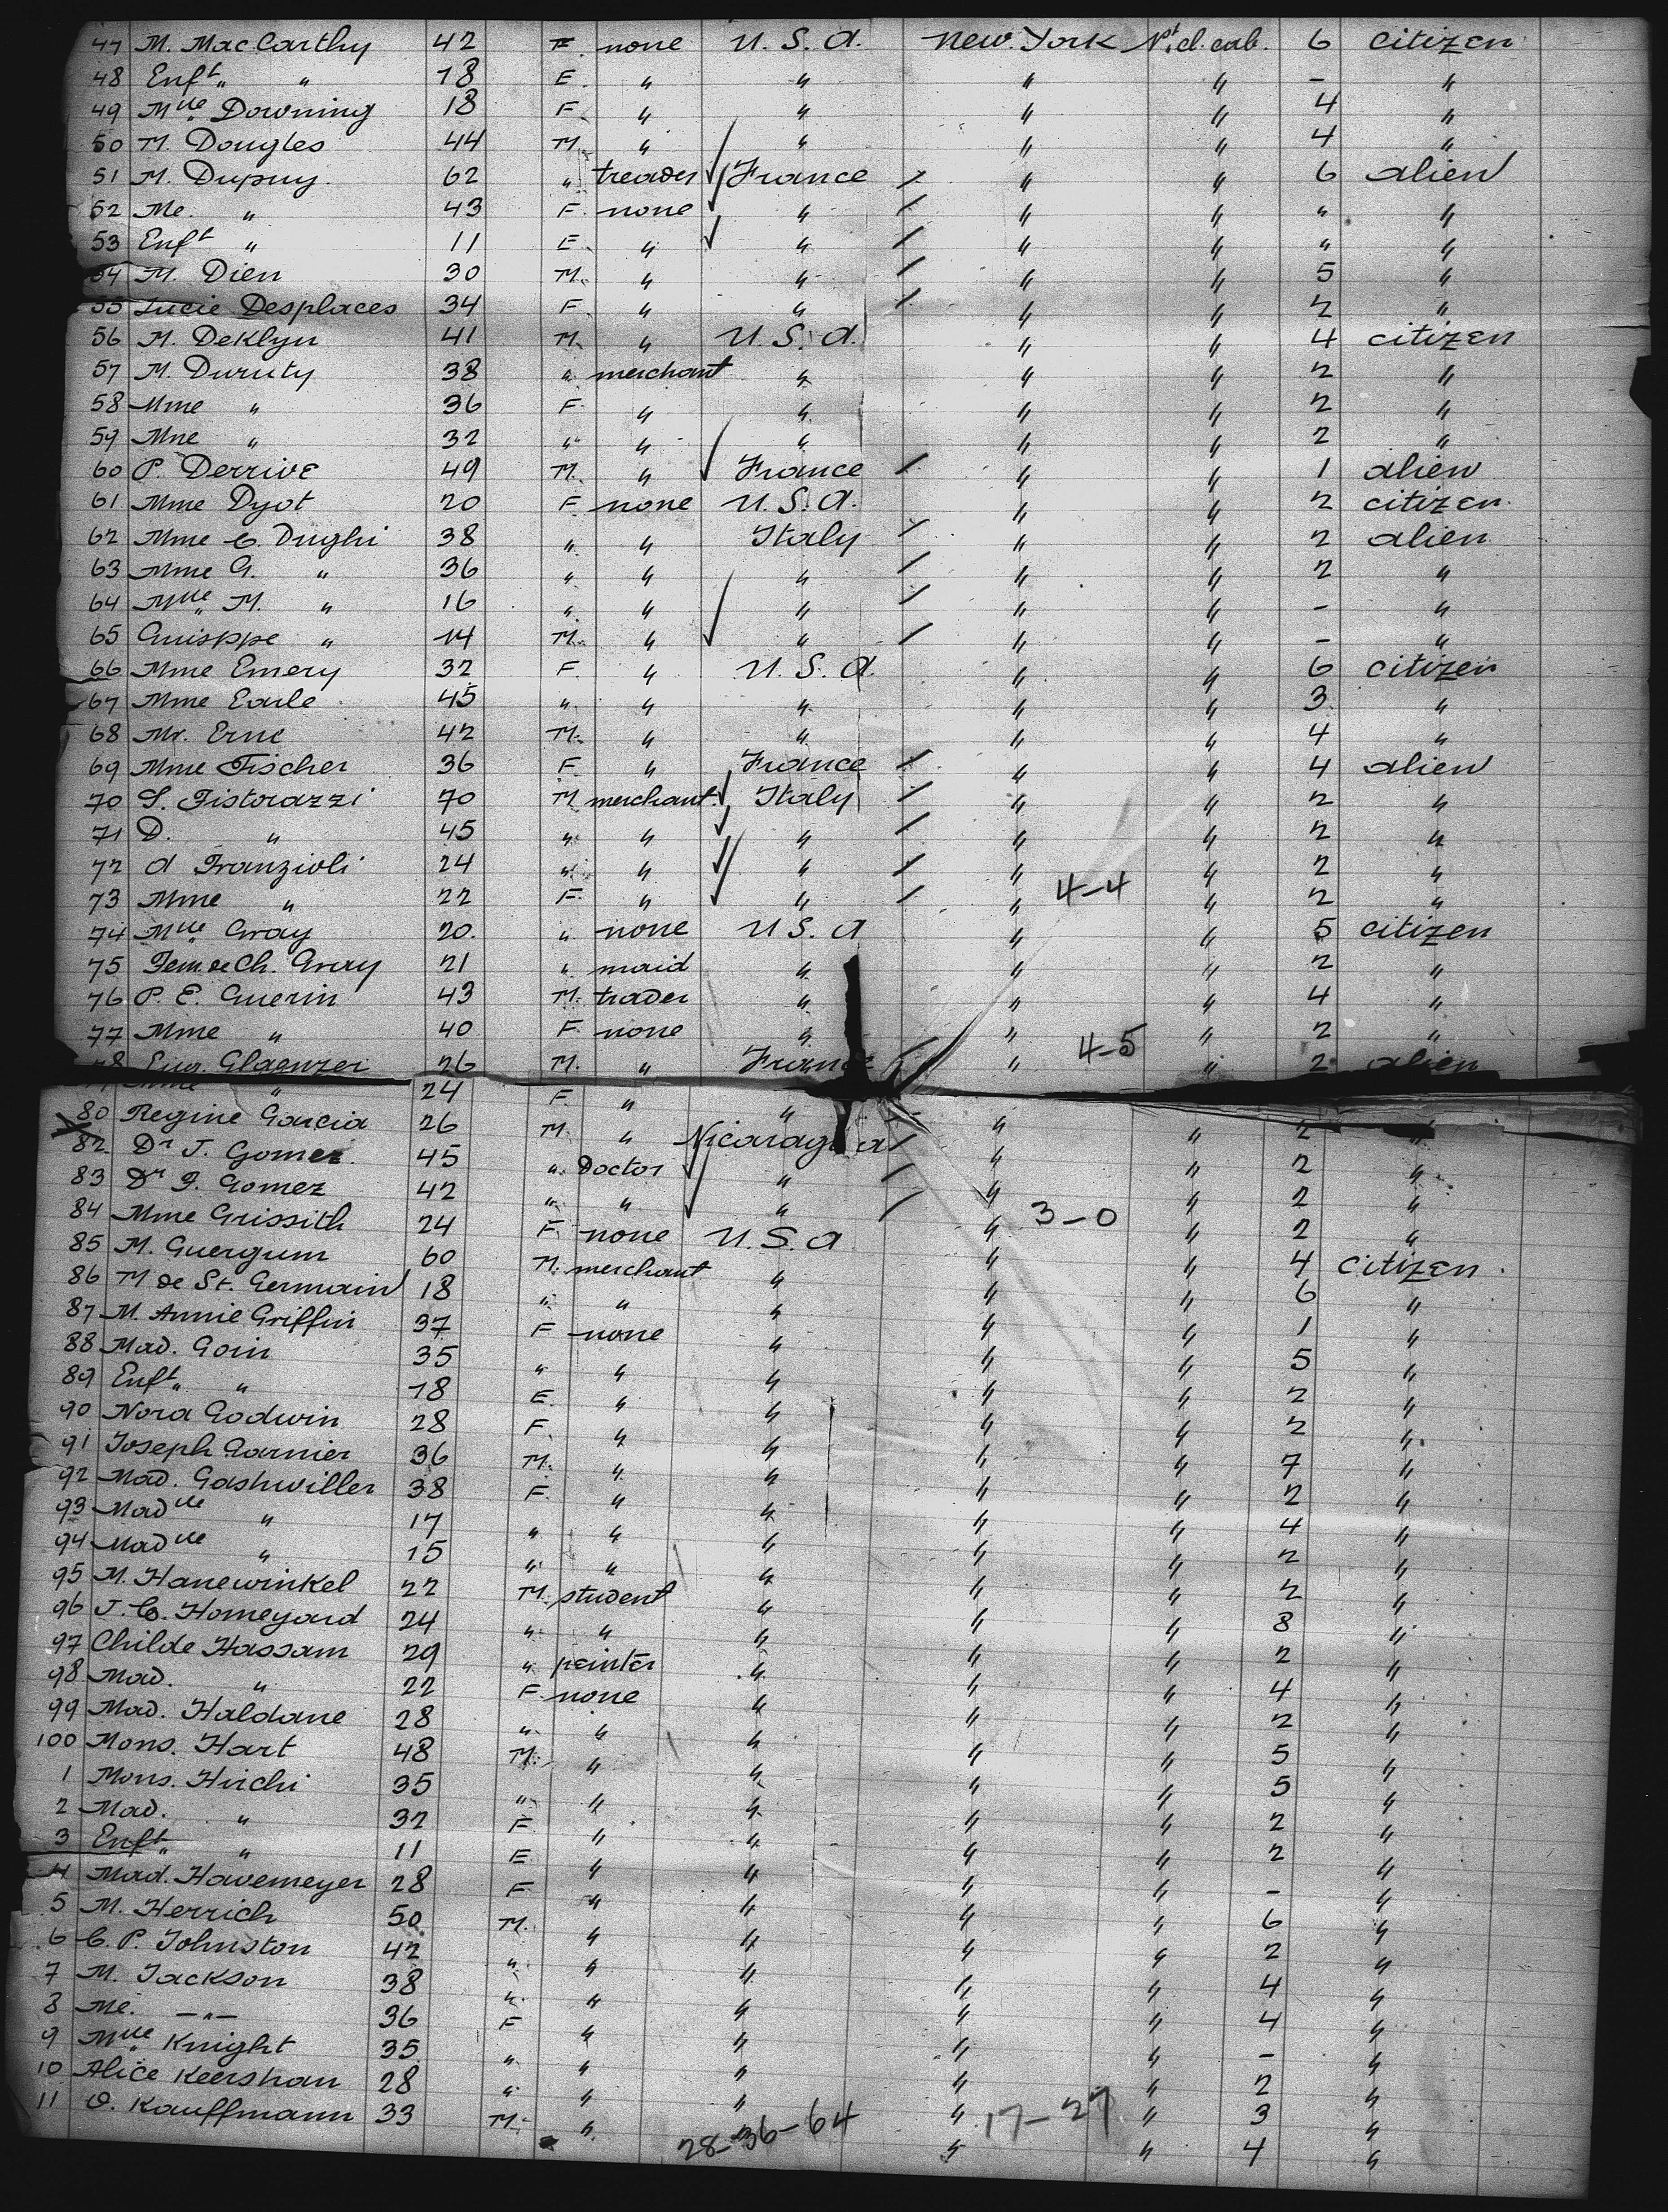 47 M. MacCarthy 42 F. none U. S. A. New. York 1st cl. cab. 6 citizen
48 Enft " " 18 E. " " " " – "
49 Mlle Downing 18 F. " " " " 4 "
50 M. Dougles 44 M. " " " " 4 "
51 M. Dupuy. 62 " treader France " " 6 alien
52 Me. " 43 F. none " " " " "
53 Enft " 11 E. " " " " " "
54 M. Dien 30 M. " " " " 5 "
55 Lucie Desplaces 34 F. " " " " 2 "
56 M. DeKlyn 41 M. " U. S. A. " " 4 citizen
57 M. Duruty 38 " merchant " " " 2 "
58 Mme " 36 F. " " " " 2 "
59 Mne " 32 " " " " " 2 "
60 P. Derrive 49 M. " France " " 1 alien
61 Mme Dyot 20 F. none U. S. A. " " 2 citizen.
62 Mme C. Dughi 38 " " Italy " " 2 alien
63 Mme G. " 36 " " " " " 2 "
64 Mlle M. " 16 " " " " " – "
65 Guisppe " 14 M. " " " " – "
66 Mme Emery 32 F. " U. S. A. " " 6 citizen
67 Mme Earle 45 " " " " " 3 "
68 Mr. Erne 42 M. " " " " 4 "
69 Mme Fischer 36 F. " France " " 4 alien
70 S. Fistorazzi 70 M merchant Italy " " 2 "
71 D. " 45 " " " " " 2 "
72 A Franzioli 24 " " " " " 2 "
73 Mme " 22 F. " " " 4-4 " 2 "
74 Mlle Gray 20. " none U S. A " " 5 citizen
75 Fem. de Ch. Gray 21 " maid " " " 2 "
76 P. E. Guerin 43 M. trader " " " 4 "
77 Mme " 40 F. none " " " 2 "
78 Eug. Glaenzer 26 M. " France " 4-5 " 2 alien
Mme " 24 F. " "
80 Regine Garcia 26 M. " Nicaragua " " 2 "
82 Dr J. Gomez. 45 " Doctor " " " 2 "
83 Dr F. Gomez 42 " " " " " 2 "
84 Mme Grissith 24 F. none U. S. A " 3-0 " 2 "
85 M. Guergum 60 M. merchant " " " 4 citizen.
86 M de St. Germain 18 " " " " " 6 "
87 M. Annie Griffin 37 F none " " " 1 "
88 Mad. Goin 35 " " " " " 5 "
89 Enft " " 18 E. " " " " 2 "
90 Nora Godwin 28 F. " " " " 2 "
91 Joseph Garnier 36 M. " " " " 7 "
92 Mad. Gashwiller 38 F. " " " " 2 "
93 Madlle " 17 " " " " " 4 "
94 Madlle " 15 " " " " " 2 "
95 M. Hanewinkel 22 M. student " " " 2 "
96 J. C. Homeyard 24 " " " " " 8 "
97 Childe Hassam 29 " peinter " " " 2 "
98 Mad. " 22 F. none " " " 4 "
99 Mad. Haldane 28 " " " " " 2 "
100 Mons. Hart 48 M. " " " " 5 "
1 Mons. Hirchi 35 " " " " " 5 "
2 Mad. " 32 F. " " " " 2 "
3 Enft " " 11 E " " " " 2 "
4 Mad. Havemeyer 28 F. " " " " – "
5 M. Herrich 50 M. " " " " 6 "
6 C. P. Johnston 42 " " " " " 2 "
7 M. Jackson 38 " " " " " 4 "
8 Me. –"– 36 F " " " " 4 "
9 Mlle Knight 35 " " " " " – "
10 Alice Keershan 28 " " " " " 2 "
11 O. Kauffmann 33 M. " " " " 3 "
28-36-64 17-27 " " 4 "